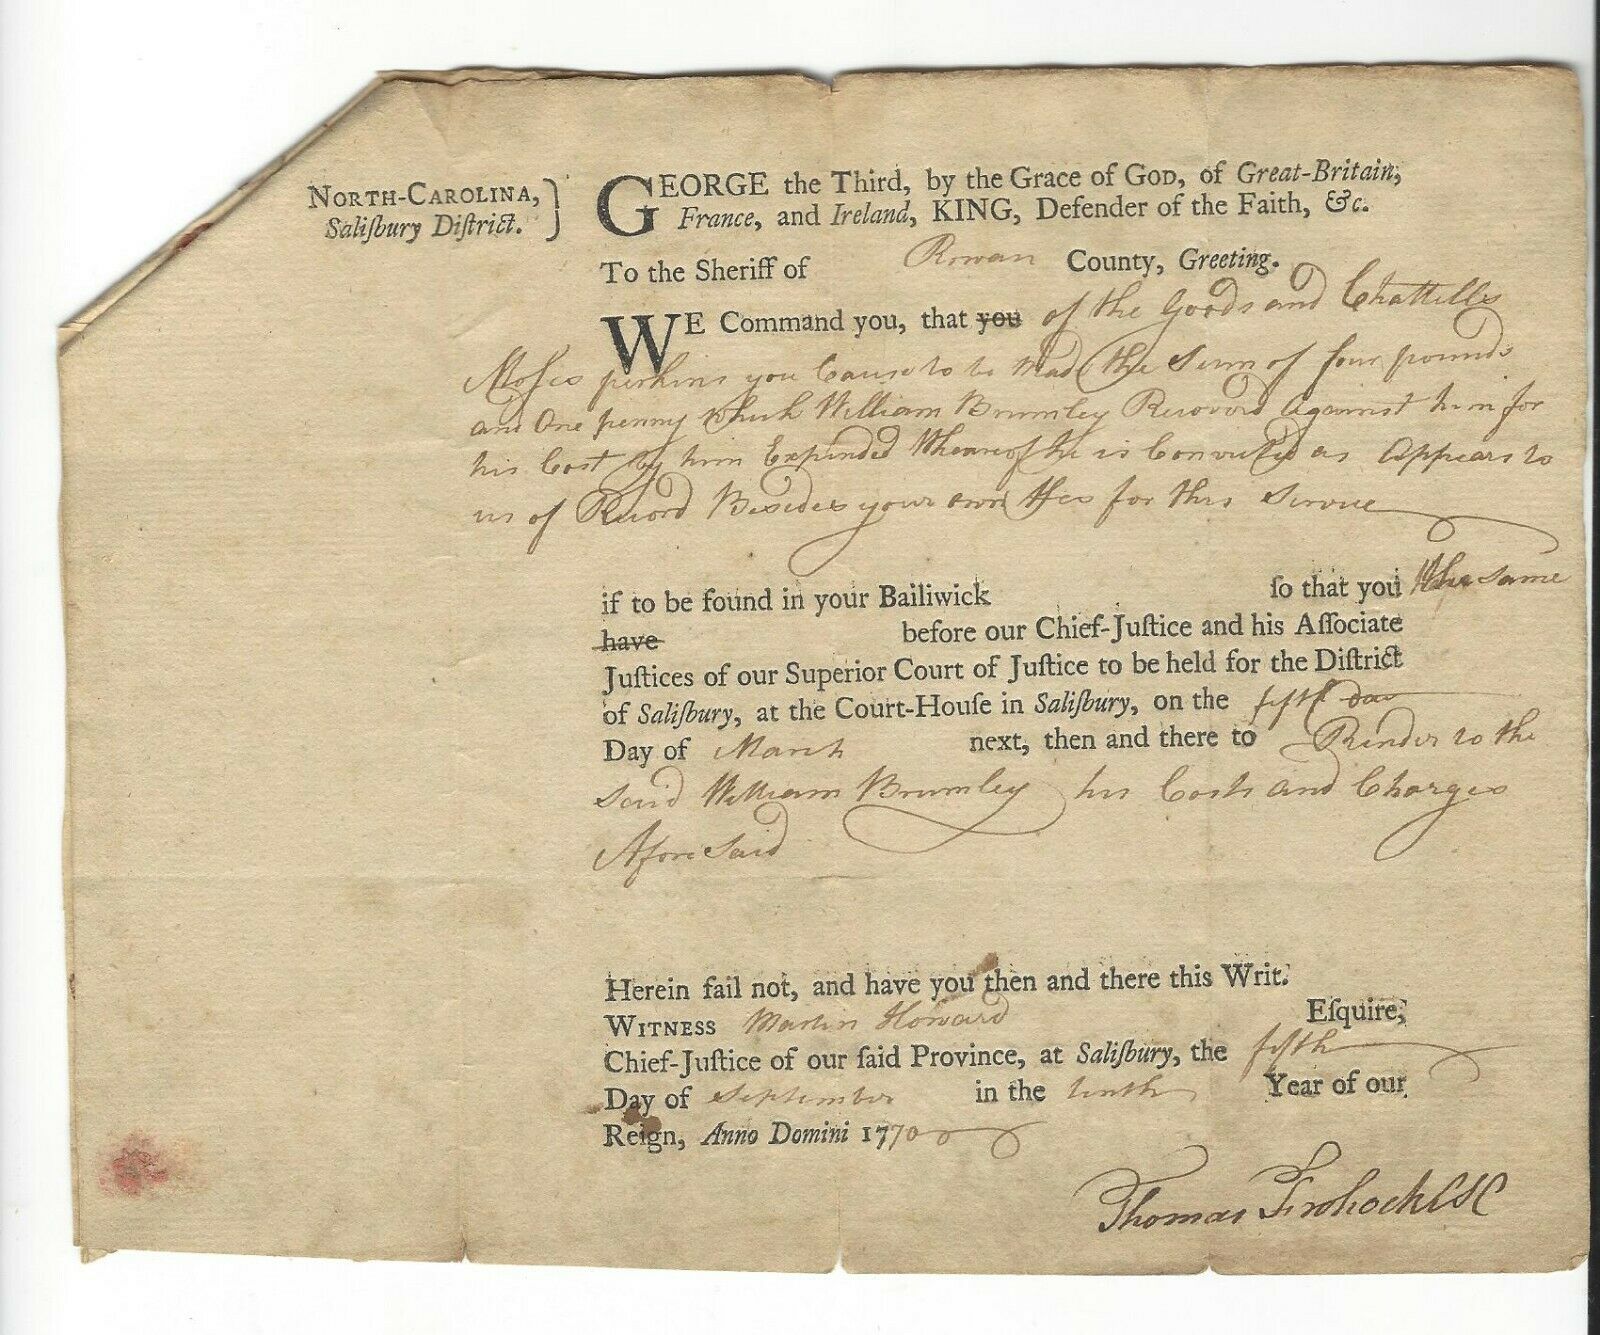 NORTH-CAROLINA,
Saliſbury Diſtrict.
GEORGE the Third, by the Grace of GOD, of Great-Britain,
France, and Ireland, KING, Defender of the Faith, &c.
To the Sheriff of Rowan County, Greeting.
WE Command you, that you of the Goods and Chattells
Moses perkins you Cause to be Mad the Sum of four pounds
and One penny which William Brumley Recoverd Against him for
his Cost by him Expended Wheareof he is Convicted as Appears to
us of Record Besides your own ffees for this Service
if to be found in your Bailiwick ſo that you the same
have before our Chief-Juſtice and his Aſſociate
Juſtices of our Superior Court of Juſtice to be held for the Diſtrict
of Saliſbury, at the Court-Houſe in Saliſbury, on the fifth day
Day of March next, then and there to Render to the
said William Brumley his Costs and Charges
Afore Said
Herein fail not, and have you then and there this Writ.
WITNESS Martin Howard Eſquire,
Chief-Juſtice of our ſaid Province, at Saliſbury, the fifth
Day of September in the tenth Year of our
Reign, Anno Domini 1770
Thomas Frohock CSC